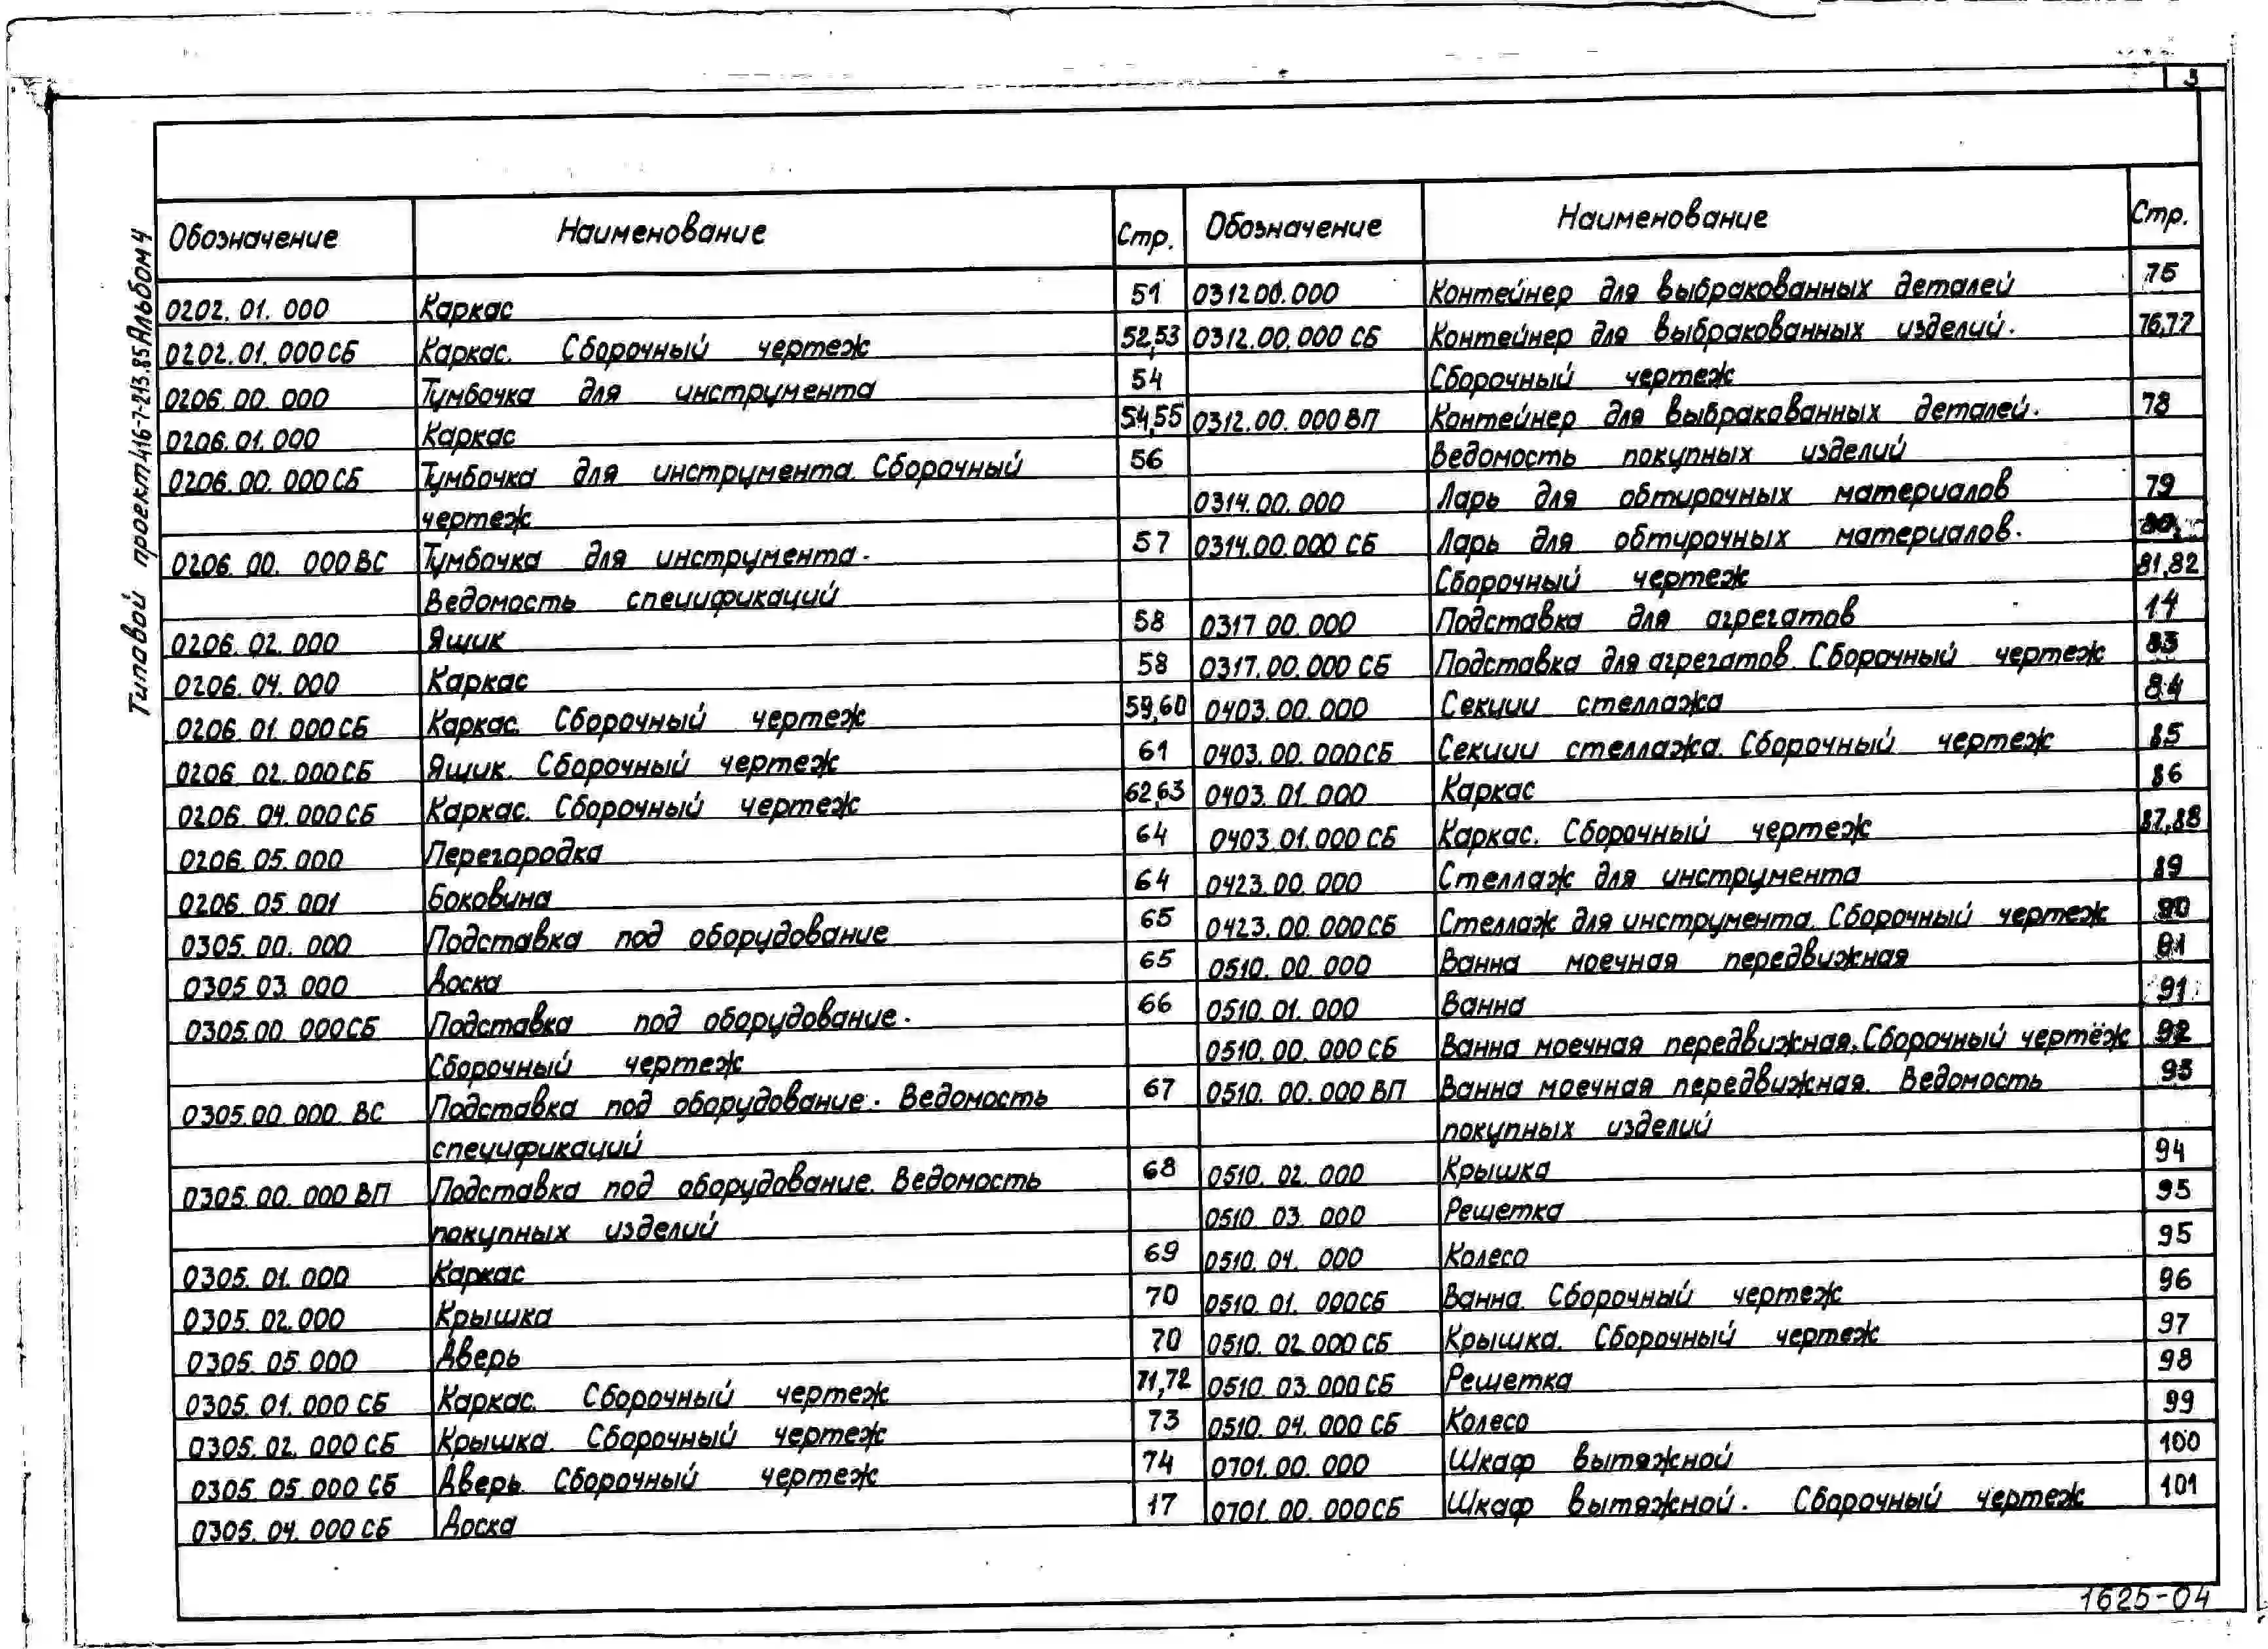 3
Типовой проект 416-7-213.85 Альбом 4
Обозначение Наименование Стр.
0202. 01. 000 Каркас 51
0202. 01. 000 СБ Каркас. Сборочный чертеж 52,53
0206. 00. 000 Тумбочка для инструмента 54
0206. 01. 000 Каркас 54,55
0206. 00. 000 СБ Тумбочка для инструмента. Сборочный 56
чертеж
0206. 00. 000 ВС Тумбочка для инструмента. 57
Ведомость спецификаций
0206. 02. 000 Ящик 58
0206. 04. 000 Каркас 58
0206. 01. 000 СБ Каркас. Сборочный чертеж 59,60
0206 02. 000 СБ Ящик. Сборочный чертеж 61
0206 04. 000 СБ Каркас. Сборочный чертеж 62,63
0206. 05. 000 Перегородка 64
0206. 05. 001 Боковина 64
0305. 00. 000 Подставка под оборудование 65
0305. 03. 000 Доска 65
0305. 00. 000 СБ Подставка под оборудование. 66
Сборочный чертеж
0305. 00. 000. ВС Подставка под оборудование. Ведомость 67
спецификаций
0305. 00. 000 ВП Подставка под оборудование. Ведомость 68
покупных изделий
0305. 01. 000 Каркас 69
0305. 02. 000 Крышка 70
0305. 05. 000 Дверь 70
0305. 01. 000 СБ Каркас. Сборочный чертеж 71,72
0305. 02. 000 СБ Крышка. Сборочный чертеж 73
0305. 05. 000 СБ Дверь. Сборочный чертеж 74
0305. 04. 000 СБ Доска 17
Обозначение Наименование Стр.
031200.000 Контейнер для выбракованных деталей 75
0312.00.000 СБ Контейнер для выбракованных изделий. 76,77
Сборочный чертеж
0312.00.000 ВП Контейнер для выбракованных деталей. 78
Ведомость покупных изделий
0314.00.000 Ларь для обтирочных материалов 79
0314.00.000 СБ Ларь для обтирочных материалов. 80,
Сборочный чертеж 81,82
0317 00. 000 Подставка для агрегатов 14
0317. 00. 000 СБ Подставка для агрегатов. Сборочный чертеж 83
0403. 00. 000 Секции стеллажа 84
0403. 00. 000 СБ Секции стеллажа. Сборочный чертеж 85
0403. 01. 000 Каркас 86
0403. 01. 000 СБ Каркас. Сборочный чертеж 87,88
0423. 00. 000 Стеллаж для инструмента 89
0423. 00. 000 СБ Стеллаж для инструмента. Сборочный чертеж 90
0510. 00. 000 Ванна моечная передвижная 91
0510. 01. 000 Ванна 91
0510. 00. 000 СБ Ванна моечная передвижная. Сборочный чертёж 92
0510. 00. 000 ВП Ванна моечная передвижная. Ведомость 93
покупных изделий
0510. 02. 000 Крышка 94
0510 03. 000 Решетка 95
0510. 04. 000 Колесо 95
0510. 01. 000 СБ Ванна. Сборочный чертеж 96
0510. 02. 000 СБ Крышка. Сборочный чертеж 97
0510. 03. 000 СБ Решетка 98
0510. 04. 000 СБ Колесо 99
0701. 00. 000 Шкаф вытяжной 100
0701. 00. 000 СБ Шкаф вытяжной. Сборочный чертеж 101
1625-04